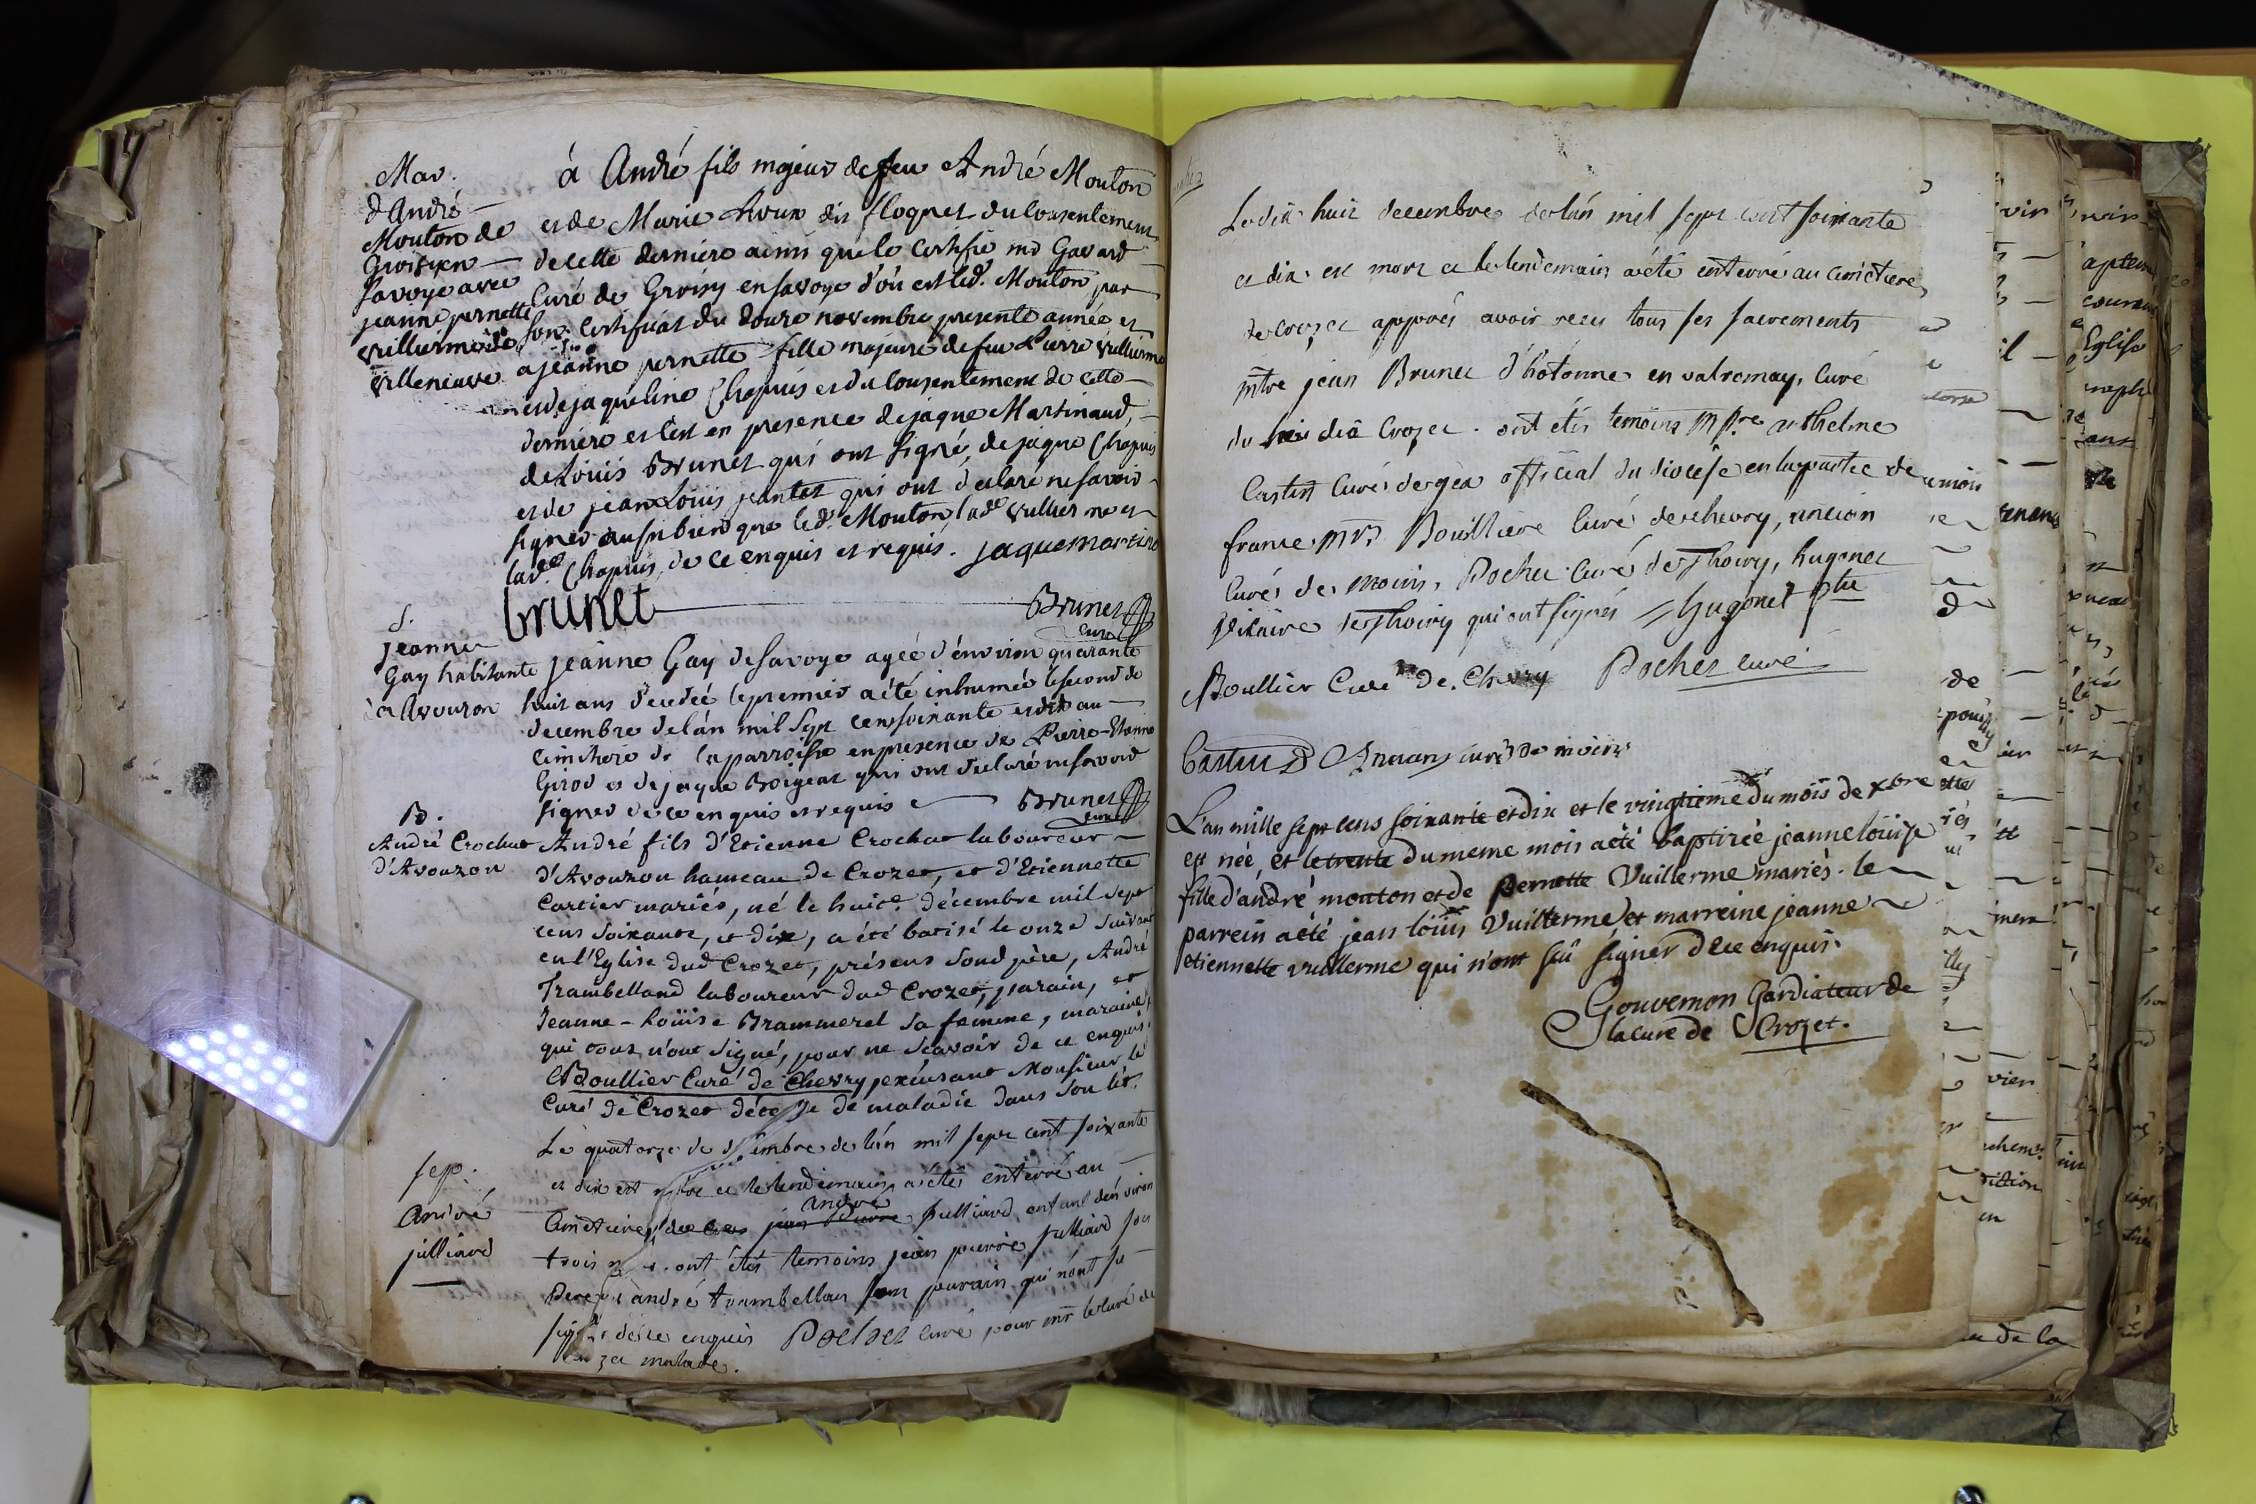 Mar.
d'André
Mouton de
Groisy en
Savoye avec
jeanne pernette
Vulliermoz de
Villeneuve
à André fils majeur de feu André Mouton
et de Marie Roux dit floquet du consentement
de cette derniere ainsi que le certifie mr Gavard
Curé de Groisy en Savoye d'où est led. Mouton par
son certificat du douze novembre presente année et
a jeanne pernette fille majeure de feu Pierre Vullierme
et de jaqueline Chapuis et du consentement de cette
derniere et c'est en presence de jaque Martinaud,
de Louis Brunet qui ont signé, de jaque Chapuis
et de jean Louis jeantet qui ont declaré ne savoir
signer aussi bien que led. Mouton, lade Vullierme et
lade Chapuis, de ce enquis et requis. jaque martin
brunet Brunet
curé
S.
jeanne
Gay habitante
à Avouzon
jeanne Gay de Savoye agée d'environ quarante
huit ans decedée le premier a été inhumée le second de
decembre de l'an mil sept cent soixante et dix au
cimetiere de la parroisse en presence de Pierre-Etienne
Girod et de jaque Boigeat qui ont declaré ne savoir
signer de ce enquis et requis Brunet
curé
B.
André Crochat
d'Avouzon
André fils d'Etienne Crochat laboureur
d'Avouzon hameau de Crozet, et d'Etiennette
Cartier mariés, né le huit decembre mil sept
cens soixante, et dix, a été batisé le onze suivant
en l'Eglise dud Crozet, présens soud père, André
Trambelland laboureur dud Crozet, parain, et
Jeanne-Loüise Brammerel sa femme, maraine,
qui tous n'ont signé, pour ne scavoir de ce enquis
Boullier Curé de Chevry, pexcusant Monsieur le
Curé de Crozet détenu de maladie dans son lit.
sep.
André
julliard
Le quatorze de decembre de l'an mil sept cent soixante
et dix est mort et le lendemain a été enterré au
cimetiere de Cro jean Pierre andré Julliard, enfant d'environ
trois ont étés temoins jean pierre Julliard son
Pere et andré trambellan son parrain qui n'ont su
signer de ce enquis Pochet curé pour mr le curé de
crozet malade.
Le dix huit decembre de l'an mil sept cent soixante
et dix est mort et le lendemain a été enterré au cimetiere
de crozet apprés avoir recu tous ses sacrements
mtre jean Brunet d'hotonne en valromay, curé
du dit Crozet. ont étés temoins mre anthelme
Castin Curé de gex official du diocése en la partie de
france. mrs Boullière curé de chevry, ancian
curé de moins, Pochet curé de Thoiry, hugonet
vicaire de Thoiry qui ont signés Hugonet ptre
Boullier Curé de Chevry Pochet curé
Castin curé de moins
L'an mille sept cens soixante et dix et le vingtieme du mois de xbre
est née, et le trente du meme mois a été baptizée jeanne loüise
fille d'andré monton et de pernette Vuillerme mariés. le
parrein a été jean loüis Vuillerme et marreine jeanne
etiennette vuillerme qui n'ont sçû signer de ce enquis.
Gouvernon Gardiateur de
la cure de Crozet.